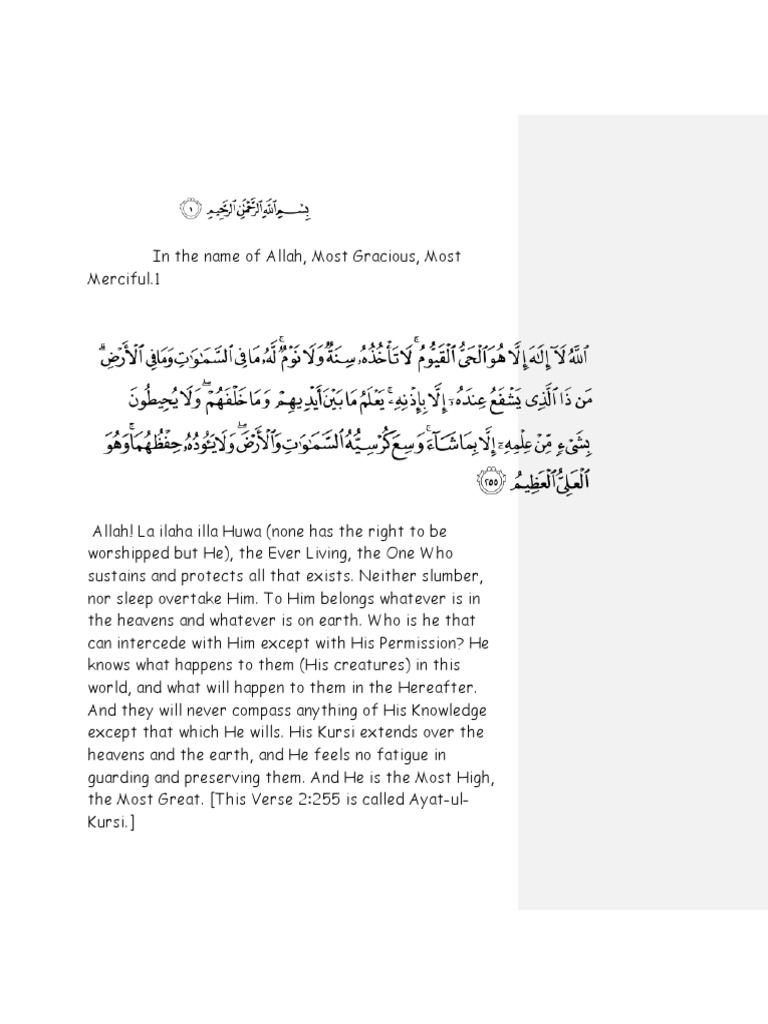 بِسْمِ ٱللَّهِ ٱلرَّحْمَـٰنِ ٱلرَّحِيمِ ١
In the name of Allah, Most Gracious, Most
Merciful.1
ٱللَّهُ لَآ إِلَـٰهَ إِلَّا هُوَ ٱلْحَىُّ ٱلْقَيُّومُ ۚ لَا تَأْخُذُهُۥ سِنَةٌ وَلَا نَوْمٌ ۚ لَّهُۥ مَا فِى ٱلسَّمَـٰوَٰتِ وَمَا فِى ٱلْأَرْضِ ۗ
مَن ذَا ٱلَّذِى يَشْفَعُ عِندَهُۥٓ إِلَّا بِإِذْنِهِۦ ۚ يَعْلَمُ مَا بَيْنَ أَيْدِيهِمْ وَمَا خَلْفَهُمْ ۖ وَلَا يُحِيطُونَ
بِشَىْءٍ مِّنْ عِلْمِهِۦٓ إِلَّا بِمَا شَآءَ ۚ وَسِعَ كُرْسِيُّهُ ٱلسَّمَـٰوَٰتِ وَٱلْأَرْضَ ۖ وَلَا يَـُٔودُهُۥ حِفْظُهُمَا ۚ وَهُوَ
ٱلْعَلِىُّ ٱلْعَظِيمُ ٢٥٥
Allah! La ilaha illa Huwa (none has the right to be
worshipped but He), the Ever Living, the One Who
sustains and protects all that exists. Neither slumber,
nor sleep overtake Him. To Him belongs whatever is in
the heavens and whatever is on earth. Who is he that
can intercede with Him except with His Permission? He
knows what happens to them (His creatures) in this
world, and what will happen to them in the Hereafter.
And they will never compass anything of His Knowledge
except that which He wills. His Kursi extends over the
heavens and the earth, and He feels no fatigue in
guarding and preserving them. And He is the Most High,
the Most Great. [This Verse 2:255 is called Ayat-ul-
Kursi.]